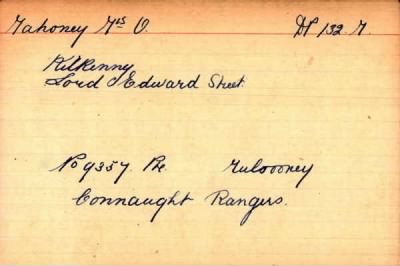 Mahoney Mrs O. DP 132. M.
Kilkenny
Lord Edward Street
No 9357. Pte. Muldooney
Connaught Rangers.